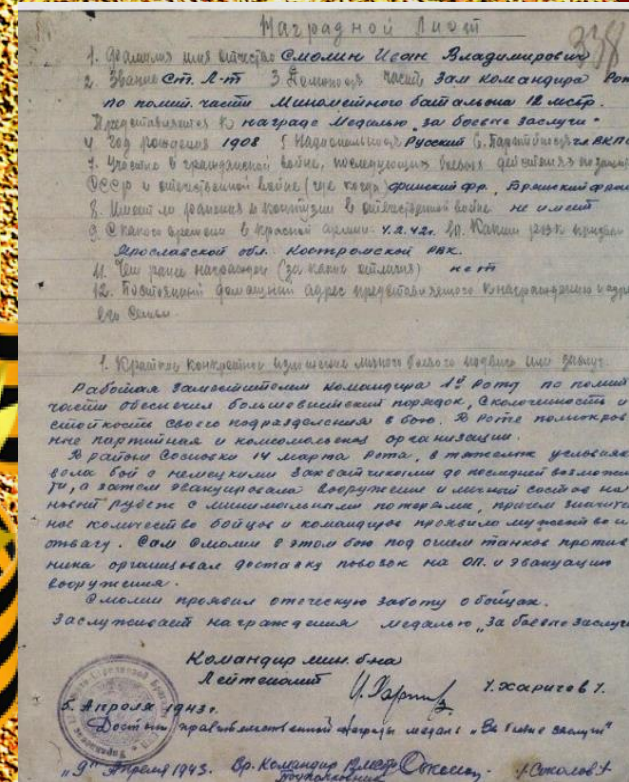 Наградной Лист
338
1. Фамилия имя отчество Смолин Иван Владимирович
2. Звание Ст. Л-т 3 Должность часть Зам командира Рот
по полит. части Минометного батальона 12 мстр.
Представляется к награде Медалью "за боевые заслуги"
4 год рождения 1908 5 Национальность Русский 6. Партийность чл ВКПб
7. Участие в гражданской войне, последующих боевых действиях по защите
СССР и отечественной войне (где когда) финский фр., Брянский фронт
8. Имеет ли ранения и контузии в отечественной войне не имеет
9. С какого времени в Красной армии. 4.2.42г. 10. Каким рвк призван
Ярославской обл. Костромской РВК.
11. Чем ранее награжден (за какие отличия) нет
12. Постоянный домашний адрес представляемого к награждению и адрес
его семьи
1. Краткое конкретное изложение личного боевого подвига или заслуг.
Работая заместителем командира 1й Роты по полит
части обеспечил большевистский порядок, сколоченность и
стойкость своего подразделения в бою. В Роте полнокров
ные партийная и комсомольская организации.
В районе Сосновки 14 марта Рота, в тяжелых условиях
вела бой с немецкими захватчиками до последней возможнос
ти, а затем эвакуировала вооружение и личный состав на
новый рубеж с минимальными потерями, причем значитель
ное количество бойцов и командиров проявило мужество и
отвагу. Сам Смолин в этом бою под огнем танков против
ника организовал доставку повозок на ОП. и эвакуацию
вооружения.
Смолин проявил отеческую заботу о бойцах.
Заслуживает награждения медалью "За боевые заслуги
Командир мин. б-на
Лейтенант /Харичев/.
5. Апреля 1943г.
Достоин правительственной награды медаль "За боевые заслуги"
"9" Апреля 1943. Вр. Командир 12 мстр /Соколов/
Подполковник